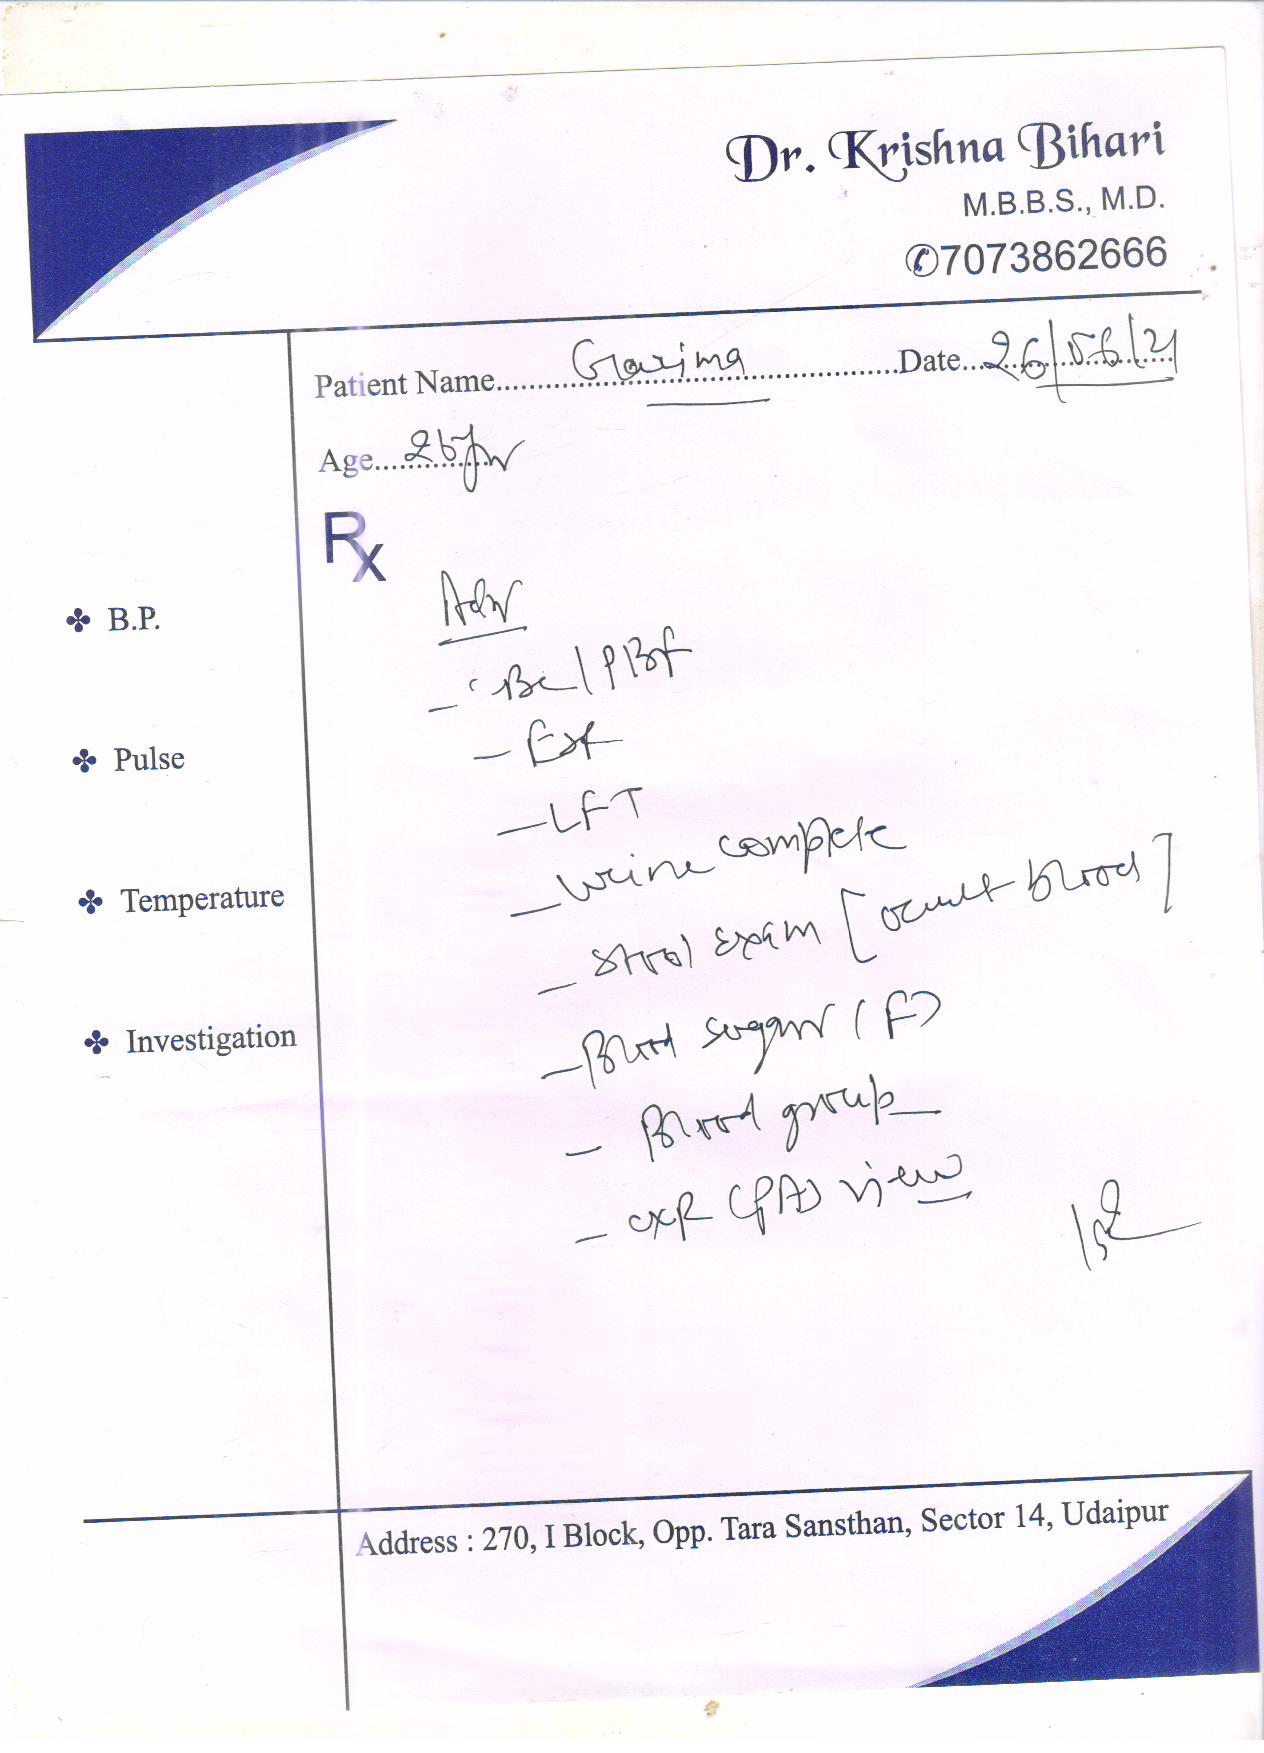 Dr. Krishna Bihari
M.B.B.S., M.D.
✆7073862666
Patient Name.....Garima.....Date...26/06/21
Age....26 yr
Rx
❖ B.P.
❖ Pulse
❖ Temperature
❖ Investigation
Adv
- CBC/PBF
- LFT
- Urine complete
- Stool exam [occult blood]
- Blood sugar (F)
- Blood group
- CXR (PA) view
Address : 270, I Block, Opp. Tara Sansthan, Sector 14, Udaipur